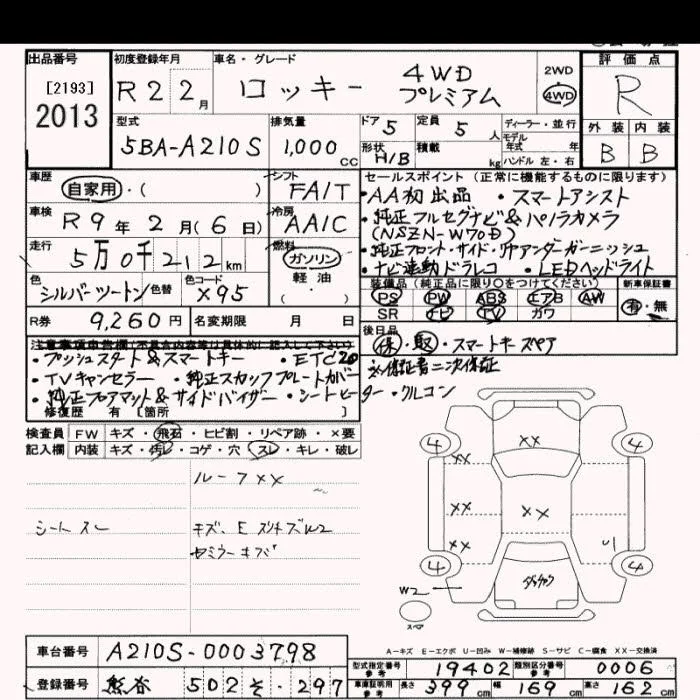 出品番号 初度登録年月 車名・グレード 評価点
[2193] 2013 R2 2月 ロッキー 4WD プレミアム 2WD 4WD R
型式 5BA-A210S 排気量 1,000 CC ドア 5 定員 5人 ディーラー・並行
形状 H/B 積載 kg モデル年式 年 ハンドル 左・右
外装 内装
B B
車歴 自家用・( ) シフト FA/T
車検 R9年2月(6日) 冷房 AAIC
走行 5万0千212km 燃料 ガソリン 軽油 ( )
色 シルバーツートン 色替 色コード X95
R券 9,260円 名変期限 月 日
セールスポイント(正常に機能するものに限ります)
・AA初出品 ・スマートアシスト
・純正フルセグナビ&パノラマカメラ
(NSZN-W70D)
・純正フロント・サイド・リヤアンダーガーニッシュ
・ナビ連動ドラレコ ・LEDヘッドライト
装備品(純正品に限り○をつけてください) 新車保証書
PS PW ABS エアB AW 有・無
SR ナビ TV カワ
後日品
保・取・スマートキースペア
※保証書ニ次保証
注意事項申告欄(不具合内容等は具体的に記入して下さい)
・プッシュスタート&スマートキー ・ETC2.0
・TVキャンセラー ・純正スカッフプレートカバー
・純正フロアマット&サイドバイザー ・シートヒーター ・クルコン
修復歴 有 [箇所 ]
検査員記入欄 FW キズ・飛石・ヒビ割・リペア跡・×要
内装 キズ・汚レ・コゲ・穴・スレ・キレ・破レ
ルーフXX
シートスレ
キズ、E
4 4
XX
XX
XX XX
XX
U1
4 4
W2
スペア
A-キズ E-エクボ U-凹み W-補修跡 S-サビ C-腐食 XX-交換済
車台番号 A210S-0003798
登録番号 熊谷 502 そ・297
型式指定番号 参考 19402 類別区分番号 参考 0006
車庫証明用 参考 長さ 399cm 幅 169cm 高さ 162cm